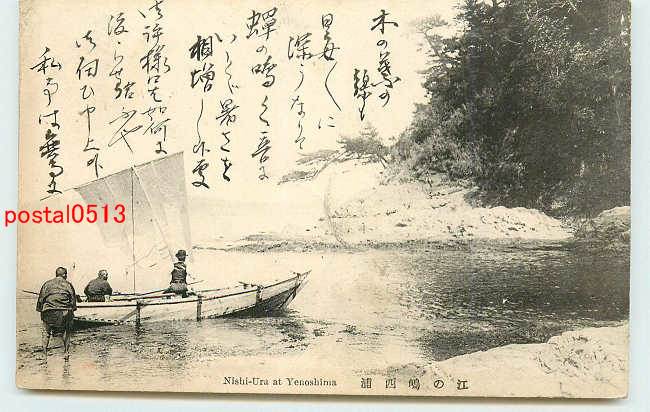 木の葉の
緑も
日毎〱に
深うなりて
蟬の鳴く音に
いとゞ暑さを
相増し候処
御許様には如何に
後
御伺ひ申上候
私事は無事に
postal0513
Nishi-Ura at Yenoshima
江の嶋西浦